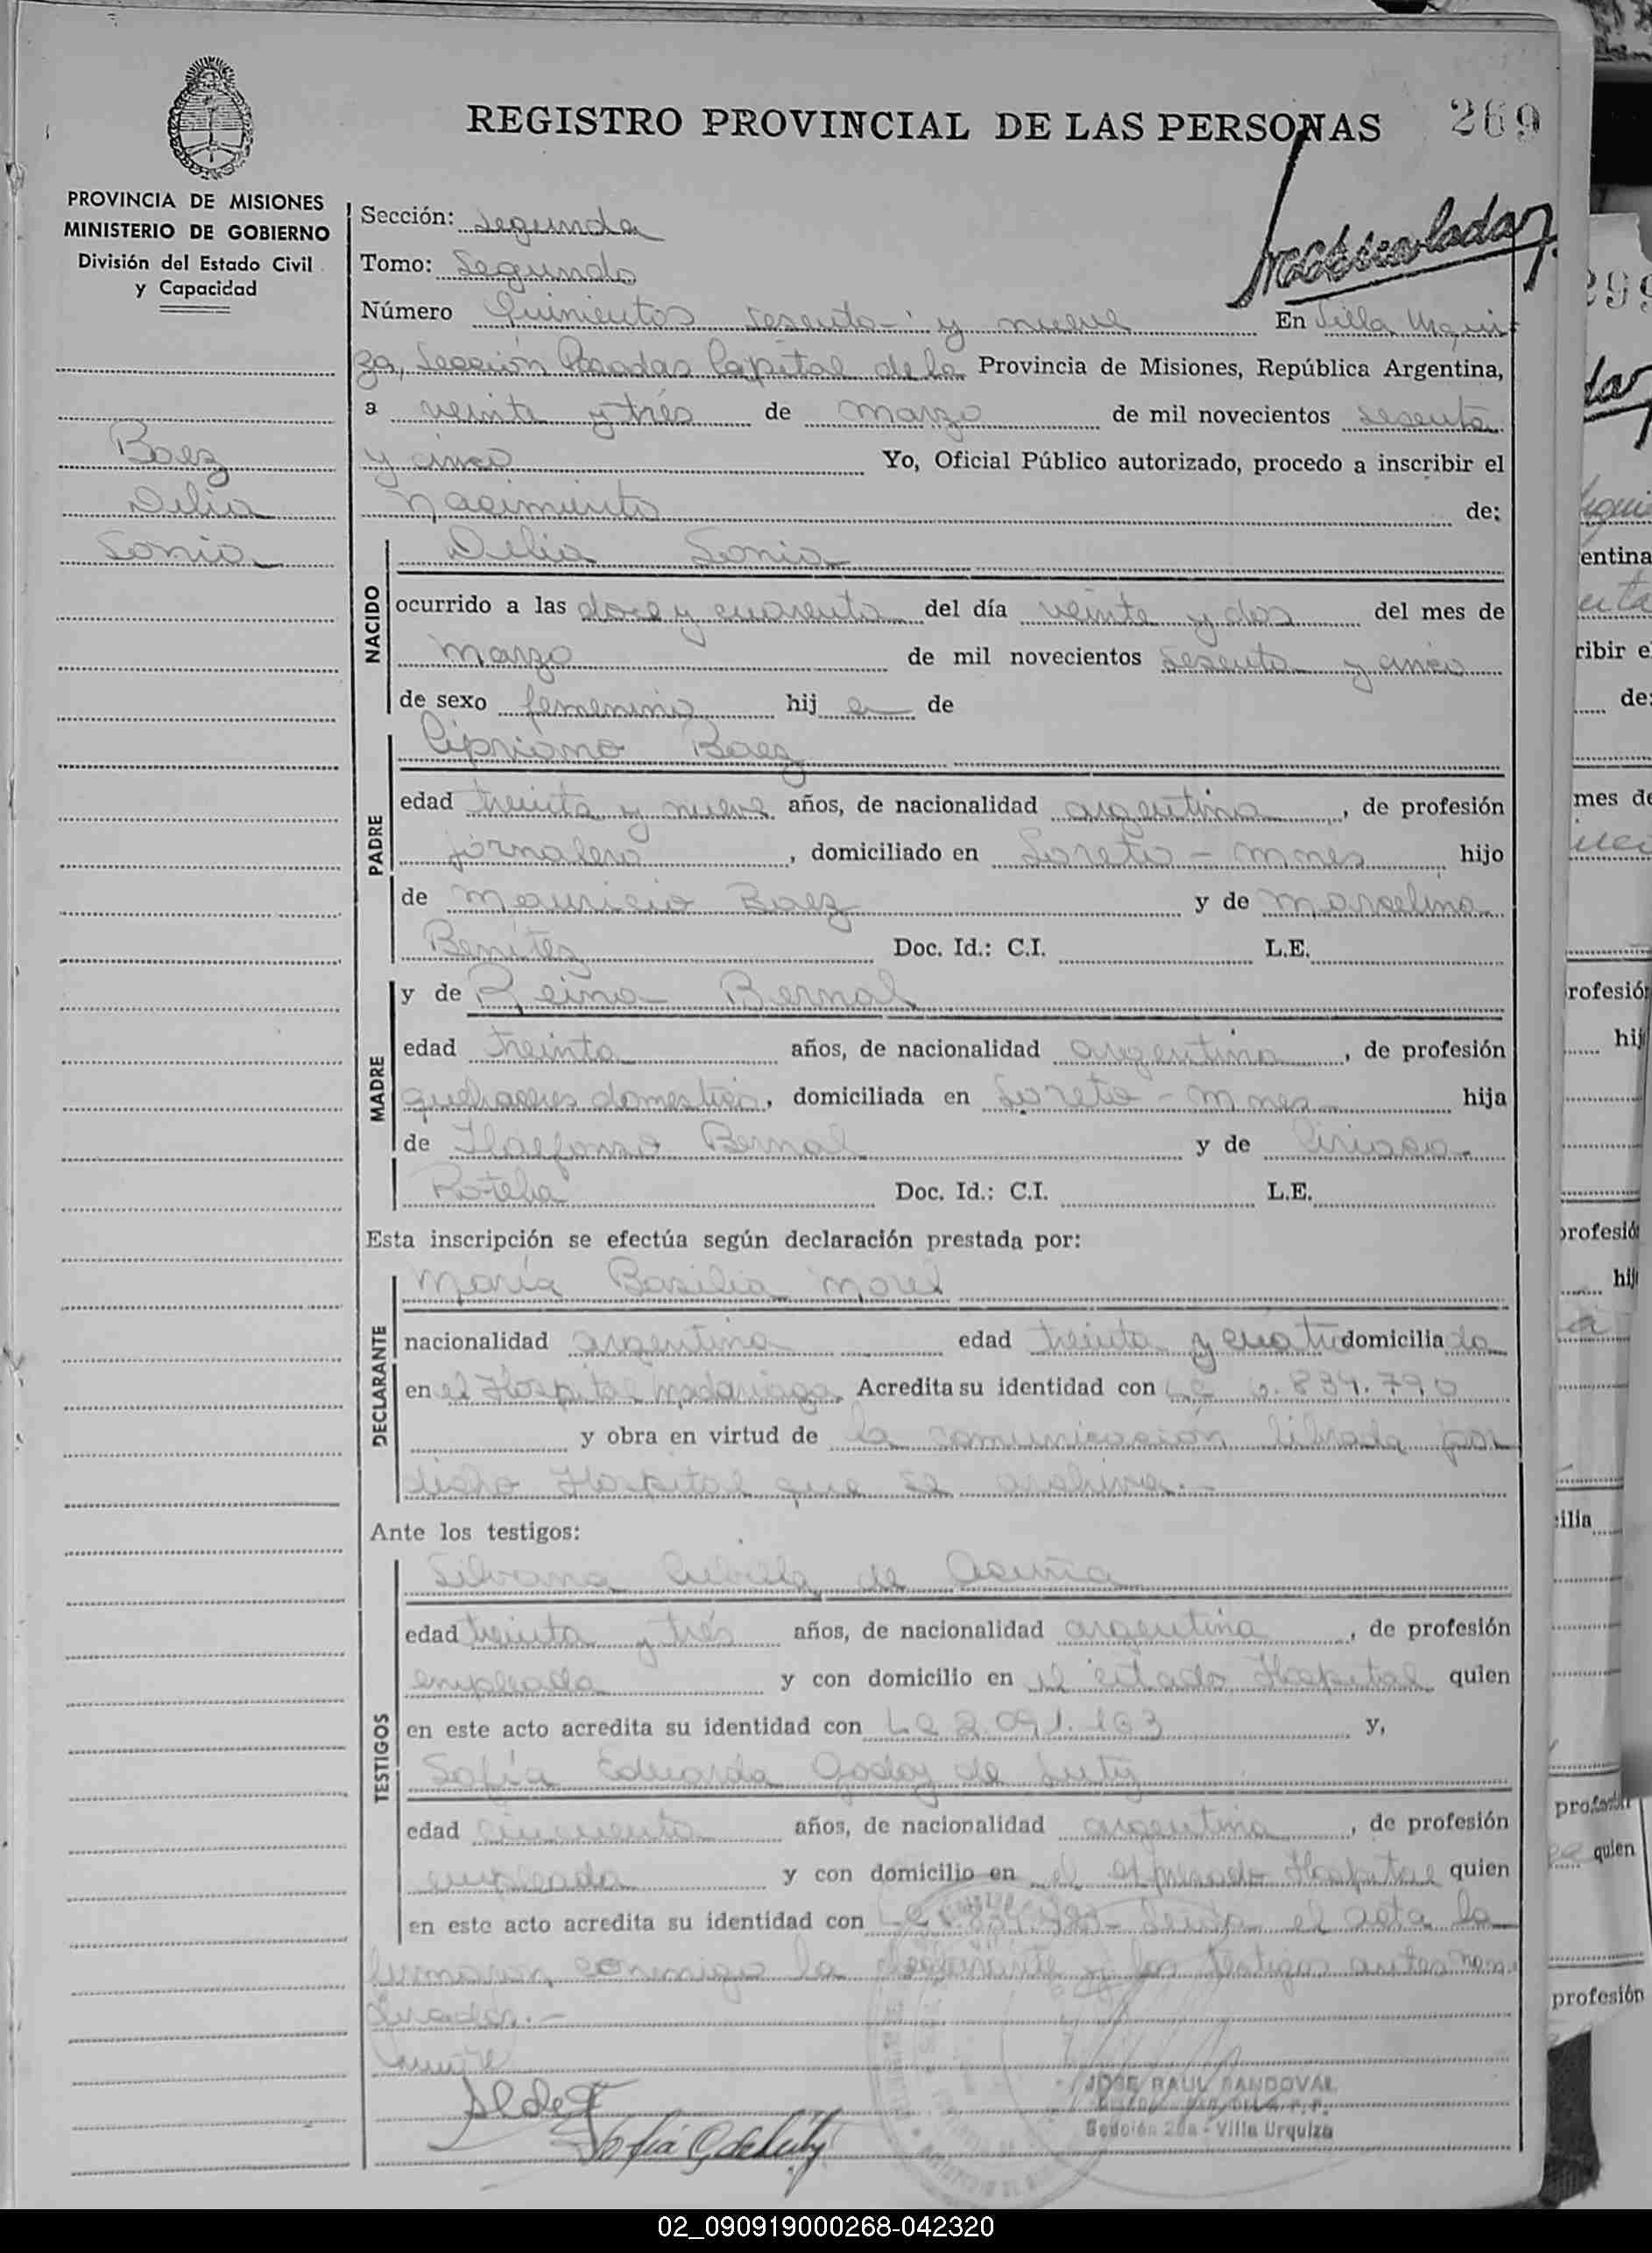 REGISTRO PROVINCIAL DE LAS PERSONAS
269
PROVINCIA DE MISIONES
MINISTERIO DE GOBIERNO
División del Estado Civil
y Capacidad
Baez
Delia
Sonia
Sección: Segunda
Tomo: Segundo
Número Quinientos sesenta y nueve En Villa Urqui
za, Sección Posadas Capital de la Provincia de Misiones, República Argentina,
a veinte y trés de marzo de mil novecientos sesenta
y cinco Yo, Oficial Público autorizado, procedo a inscribir el
nacimiento de:
NACIDO
Delia Sonia
ocurrido a las doce y cuarenta del día veinte y dos del mes de
marzo de mil novecientos sesenta y cinco
de sexo femenino hij a de
PADRE
Cipriano Baez
edad treinta y nueve años, de nacionalidad argentina, de profesión
jornalero, domiciliado en Loreto - Mnes hijo
de Mauricio Baez y de Marcelina
Benítez Doc. Id.: C.I. L.E.
MADRE
y de Reina Bernal
edad treinta años, de nacionalidad argentina, de profesión
quehaceres domesticos, domiciliada en Loreto - Mnes hija
de Ildefonso Bernal y de Ciriaca
Rotela Doc. Id.: C.I. L.E.
Esta inscripción se efectúa según declaración prestada por:
DECLARANTE
María Basilia Morel
nacionalidad argentina edad treinta y cuatro domicilia da
en el Hospital Madariaga. Acredita su identidad con LC .834.790
y obra en virtud de la comunicación librada por
dicho Hospital que se archiva.-
Ante los testigos:
TESTIGOS
Silvana de Acuña
edad treinta y trés años, de nacionalidad argentina, de profesión
empleada y con domicilio en el citado Hospital quien
en este acto acredita su identidad con LC 2.091.163 y,
Sofía Eduarda Godoy de Luty
edad cincuenta años, de nacionalidad argentina, de profesión
empleada y con domicilio en el expresado Hospital quien
en este acto acredita su identidad con LC el acta la
firmaron conmigo la declarante y los testigos antes nom
brados.-
JOSE RAUL SANDOVAL
Sección 2da - Villa Urquiza
02_090919000268-042320